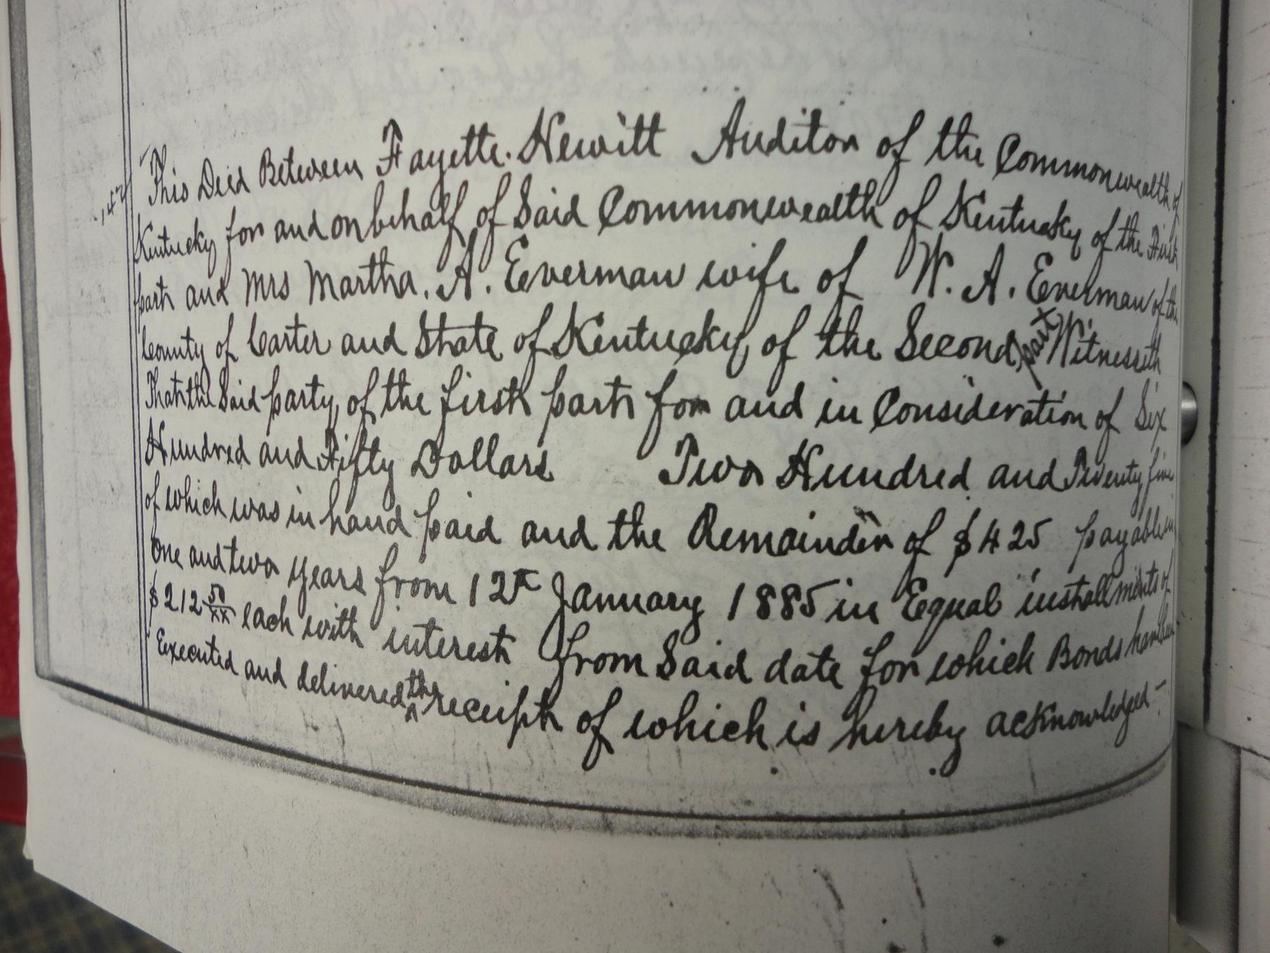 This Deed Between Fayette. Hewitt Auditor of the Commonwealth of
Kentucky for and on behalf of Said Commonwealth of Kentucky of the First
part and Mrs Martha. A. Everman wife of W. A. Everman of the
County of Carter and State of Kentucky of the Second part Witnesseth
That the Said party of the first part for and in Consideration of Six
Hundred and Fifty Dollars Two Hundred and Twenty five
of which was in hand paid and the Remainder of $425 payable in
one and two years from 12th January 1885 in Equal installments of
$212 50/xx each with interest from Said date for which Bonds have been
Executed and delivered the receipt of which is hereby acknowledged —